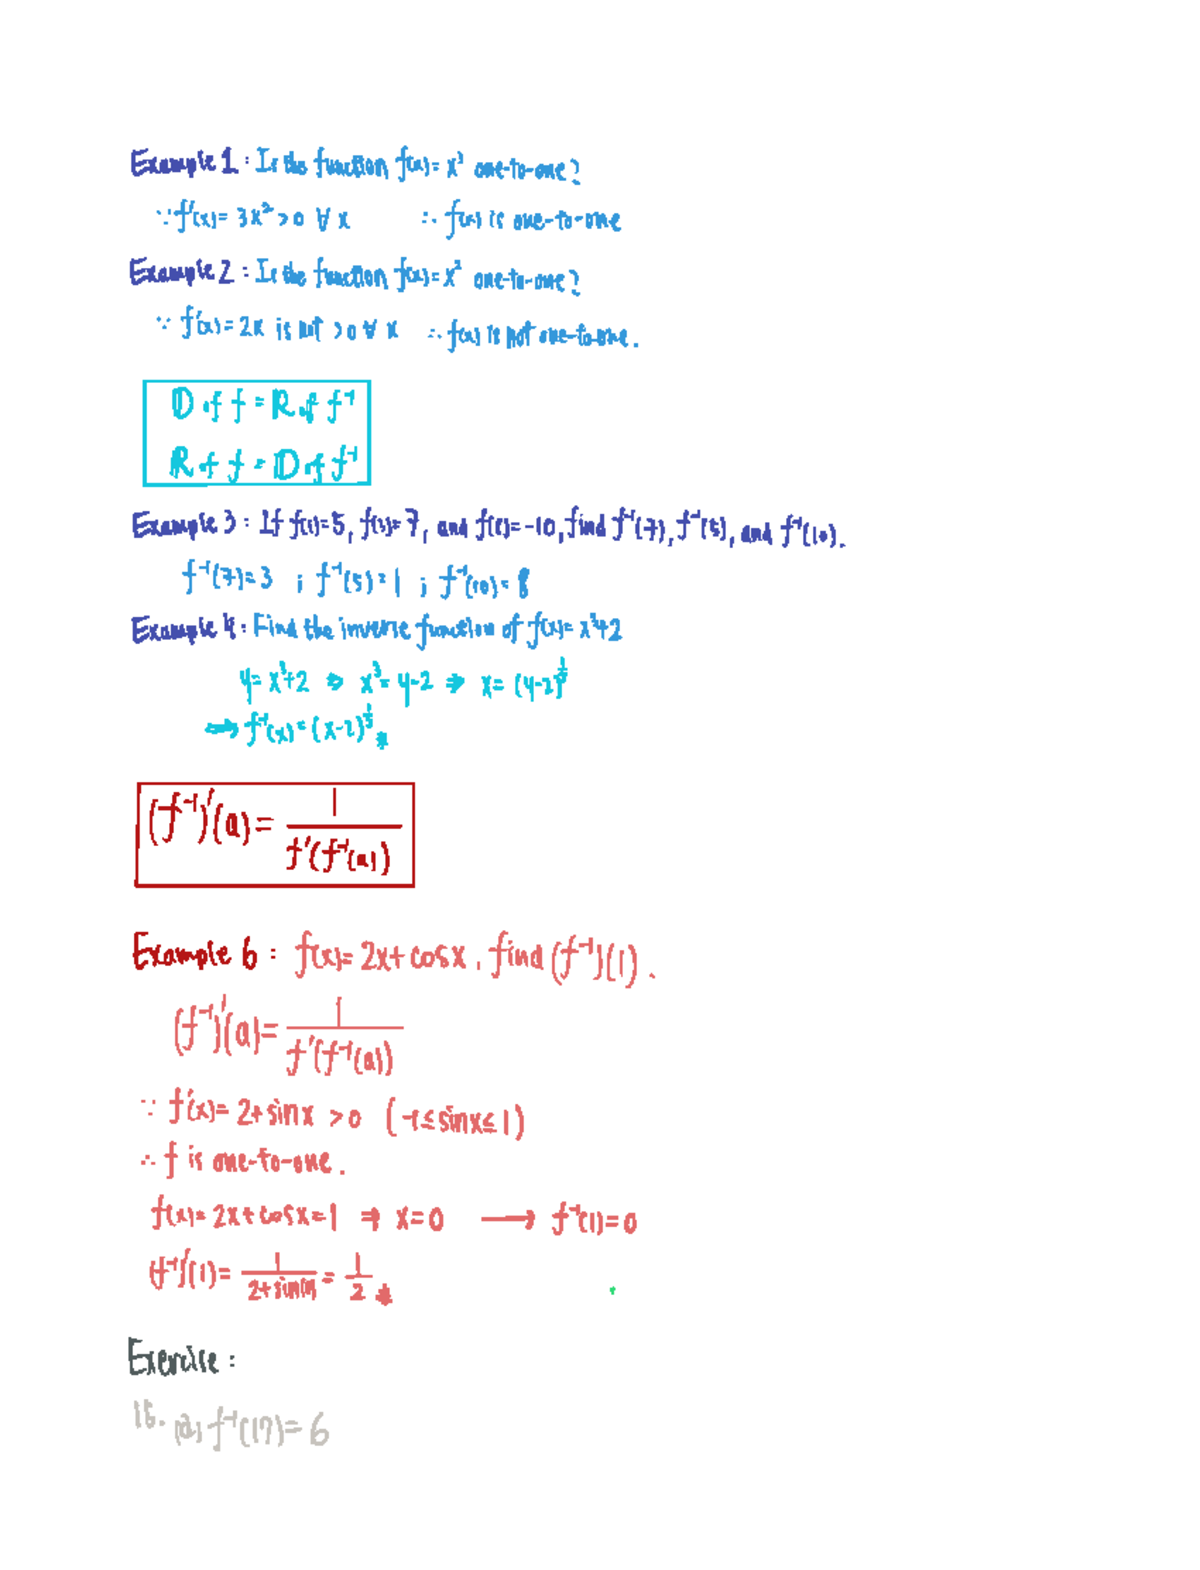 Example 1 : Is the function f(x) = x³ one-to-one?
∵ f'(x) = 3x² > 0 ∀ x ∴ f(x) is one-to-one
Example 2 : Is the function f(x) = x² one-to-one?
∵ f'(x) = 2x is not > 0 ∀ x ∴ f(x) is not one-to-one.
D of f = R of f⁻¹
R of f = D of f⁻¹
Example 3 : If f(1)=5, f(3)=7, and f(8)=-10, find f⁻¹(7), f⁻¹(5), and f⁻¹(10).
f⁻¹(7)=3 ; f⁻¹(5)=1 ; f⁻¹(10)=8
Example 4 : Find the inverse function of f(x)= x³+2
y= x³+2 ⇒ x³= y-2 ⇒ x= (y-2)^(1/3)
⇒ f⁻¹(x)=(x-2)^(1/3) *
(f⁻¹)'(a) = 1 / f'(f⁻¹(a))
Example 6 : f(x)= 2x+cosx, find (f⁻¹)(1).
(f⁻¹)'(a)= 1 / f'(f⁻¹(a))
∵ f'(x)= 2+sinx >0 (-1≤sinx≤1)
∴ f is one-to-one.
f(x)= 2x+cosx=1 ⇒ x=0 → f⁻¹(1)=0
(f⁻¹)'(1)= 1 / 2+sin(0) = 1/2 *
Exercise :
18. (a) f⁻¹(17)=6